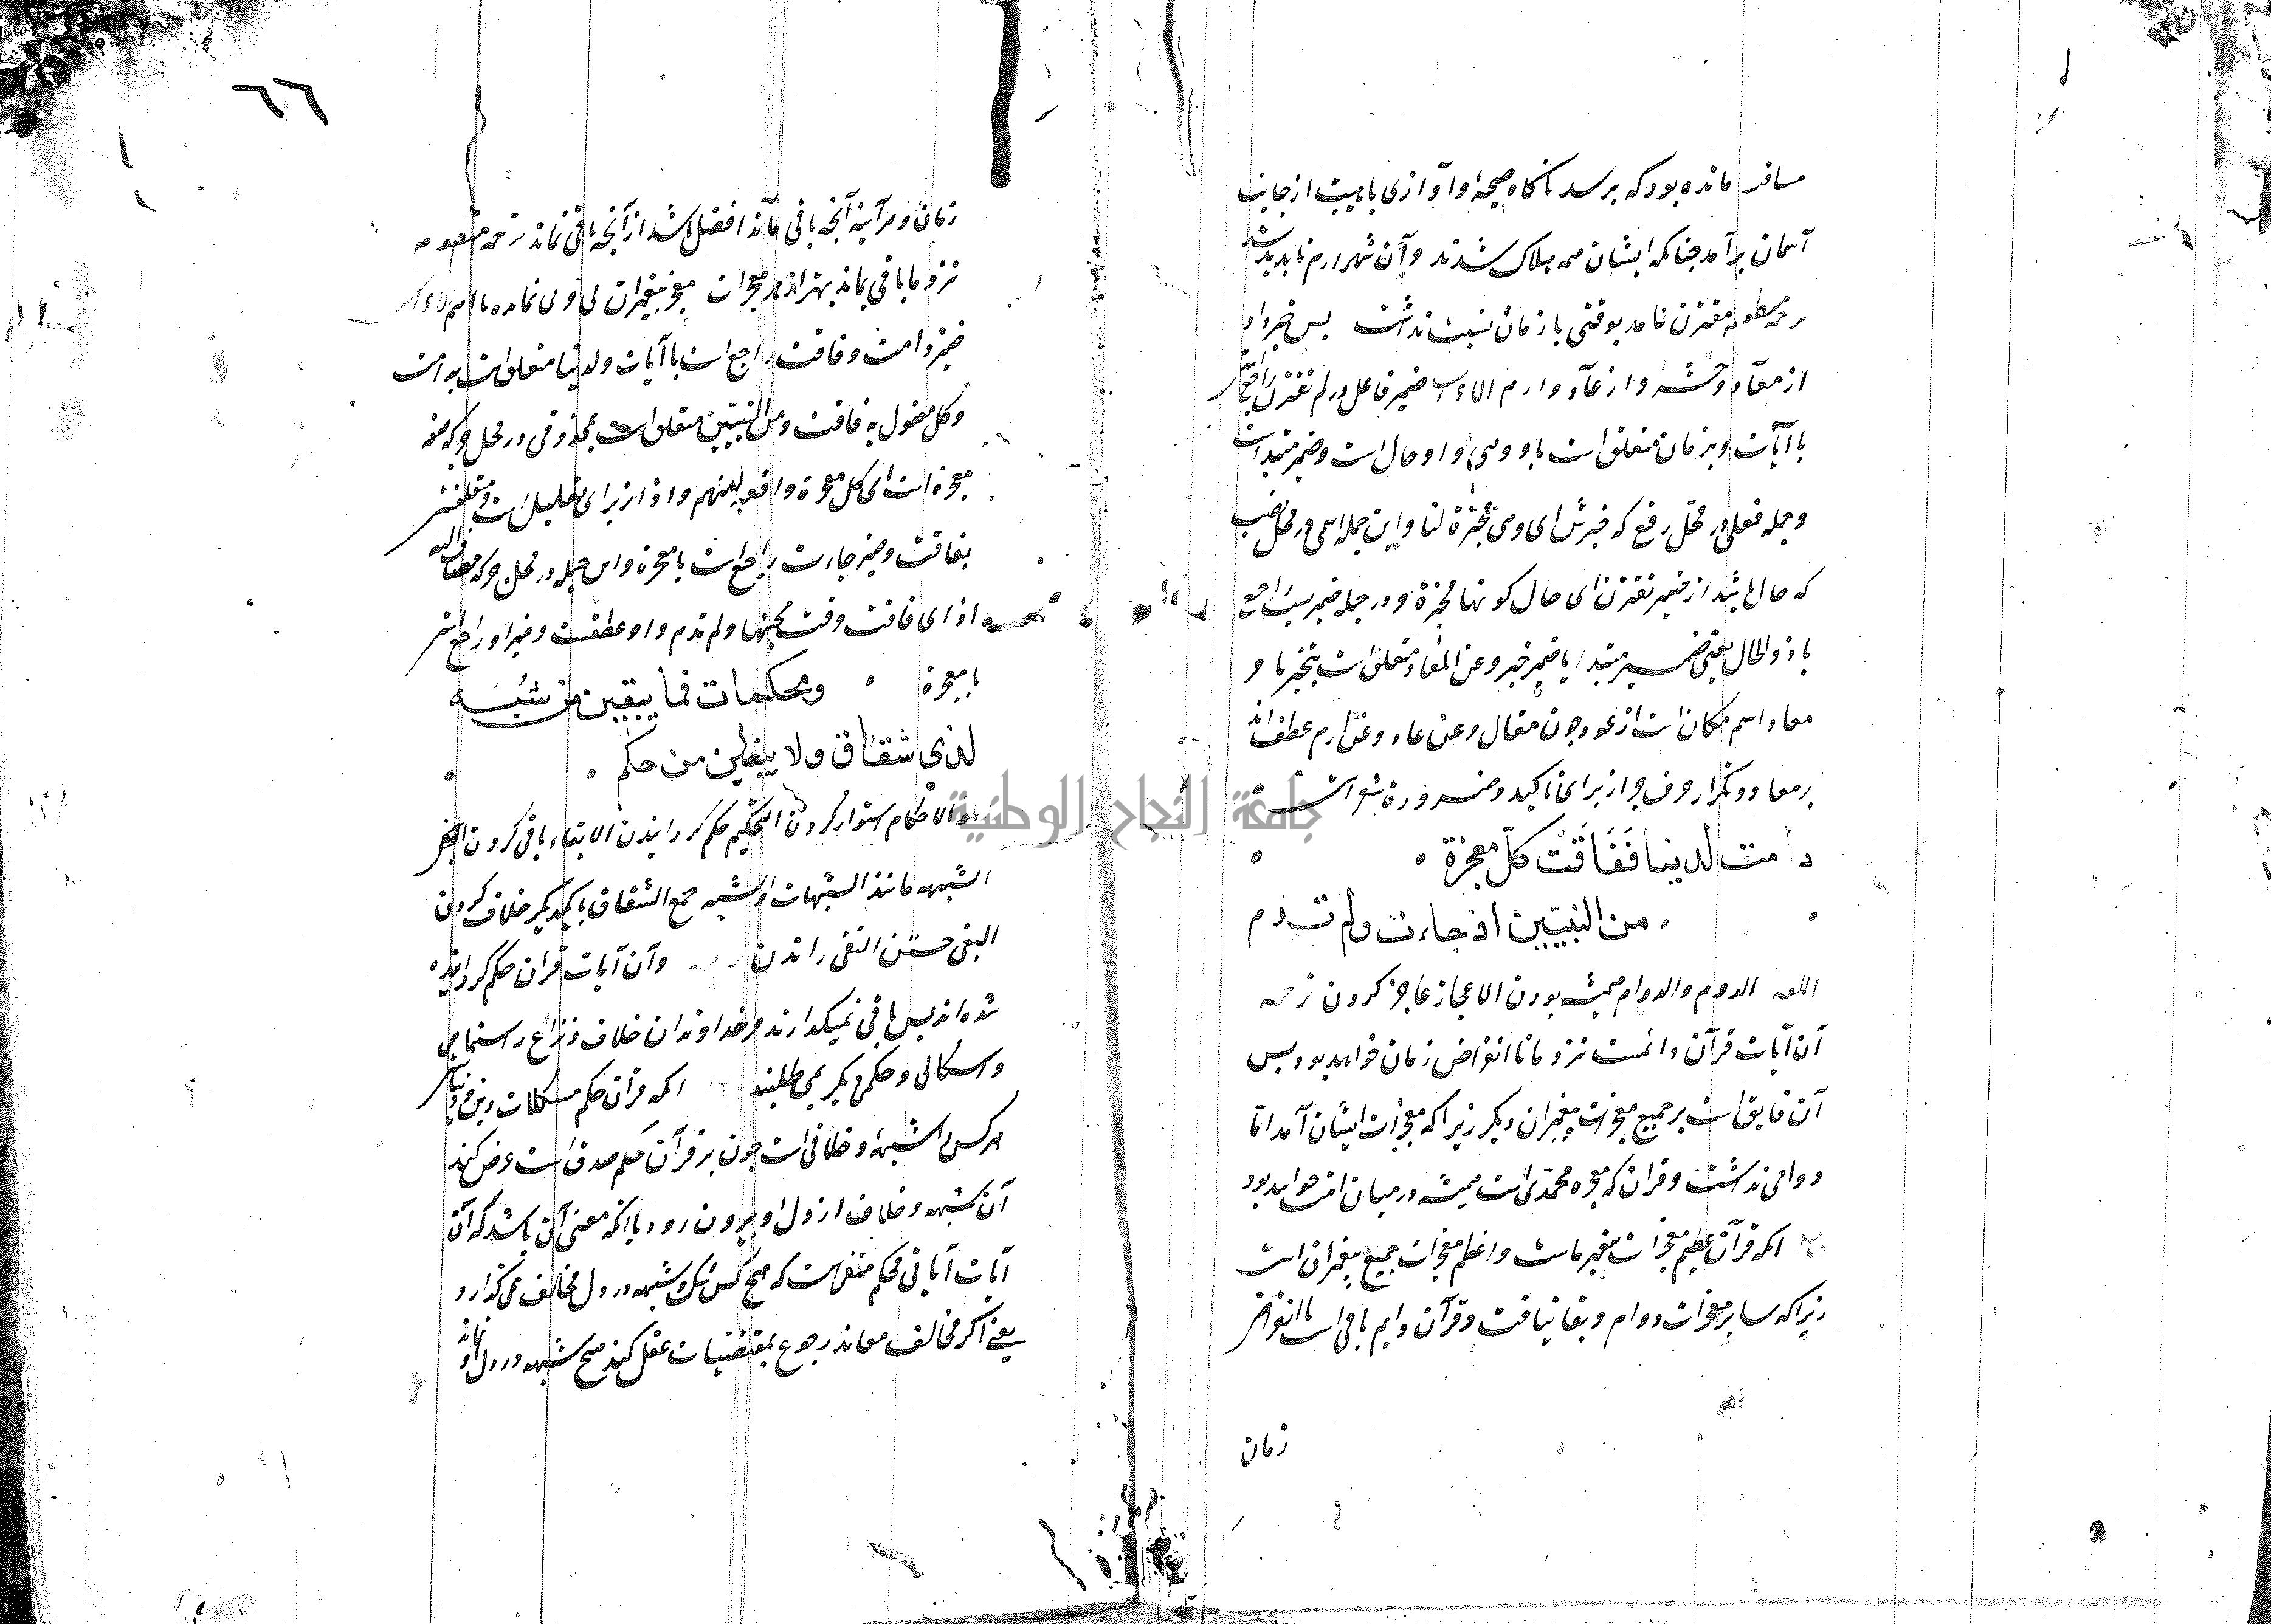 مسافت مانده بود که برسد ناکاه صیحهٔ و آوازی با هیبت از جانب
آسمان برآمد جنانکه ایشان همه هلاک شدند و آن شهر ارم نابدید شد
مقترن نامد بوقتی با زمان نسبت نداشت بس خبر داد
از معاد و حشر و از عاد و ارم الاعراب ضمیر فاعل در لم تقترن راجع است
با آیات و بزمان متعلق است باو و هی واو حال است و ضمیر مبتداست
و جمله فعلی در محل رفع که خبرش ای وهی مخبرة لنا و این جمله اسمی در محل نصب
که حال باشد از ضمیر تقترن ای حال کونها مخبرة و در جمله ضمیریست راجع
با ذو الحال یعنی ضمیر مبتدا یا ضمیر خبر و عن المعاد متعلق است بتخبرنا و
معاد اسم مکان است از عود جون مقال و عن عاد و عن ارم عطف اند
بر معاد و تکرار حرف جر از برای تاکید و ضرورة شعر است
دامت لدینا ففاقت کل معجزة
من النبیین اذ جاءت ولم تدم
اللغه الدوم والدوام همیشه بودن الاعجاز عاجز کردن ترجمه
آن آیات قرآن دائمست نزد ما تا انقراض زمان خواهد بود وبس
آن فایق است بر جمیع معجزات پیغمبران دیکر زیرا که معجزات ایشان آمد امّا
دوامی نداشت و قران که معجزه محمدی است همیشه در میان امت خواهد بود
انکه قرآن عظیم معجزات پیغمبر ماست و اعظم معجزات جمیع پیغمبران است
زیرا که سایر معجزات دوام و بقا نیافت و قرآن دایم باقی است تا انقراض
زمان
٦٦
زمان و هر آینه آنجه باقی ماند افضل باشد از آنجه باقی نماند ترجمه منظومه
نزد ما باقی بماند بهتر از هر معجزات معجز پیغمبران لی ولی نمانده با امم الاعراب
ضمیر دامت و فاقت راجع است با آیات و لدینا متعلق است به دامت
و کل مفعول به فاقت و من النبیین متعلق است بمحذوفی در محل جر که صفه
معجزه است ای کل معجزة واقعه منهم و اذ از برای تعلیل است و متعلقش
بفاقت و ضمیر جاءت راجع است با معجزه و این جمله در محل جر که مضاف الیه
اذ ای فاقت وقت مجیئها ولم تدم واو عطفست و ضمیر او راجع است
با معجزة ومحکمات فما یبقین من شبه
لذی شقاق ولا یبغین من حکم
الاحکام استوار کردن التحکیم حکم کردانیدن الابقاء باقی کردن
الشبهه مانند الشبهات و الشبه جمع الشقاق با یکدیکر خلاف کردن
البغی جستن النفی راندن و آن آیات قران حکم کردانیده
شده اند بس باقی نمیکذارند مر خداوندان خلاف و نزاع را شبهای
و اشکالی و حکمی دیکر نمی طلبند انکه قران حکم مشکلات دین و دنیاست
هر کس را شبهه و خلافی است جون بر قرآن حکم صدق است عرض کند
آن شبهه و خلاف از دل او بیرون رود یا انکه معنی آن باشد که آن
آیات آیاتی محکم متقن است که هیج کس شک و شبهه در دل مخالف نمی کذارد
یعنی اکر مخالف معاند رجوع بمقتضیات عقل کند هیج شبهه در دل او نماند
جامعة النجاح الوطنية